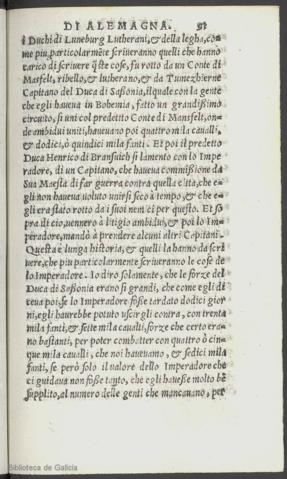 DI ALEMAGNA. 51
i Duchi di Luneburg Lutherani, & della legha, co=
me piu, particolarmẽte scriveranno quelli che hanno
carico di scrivere q̃ste cose, fu rotto da un Conte di
Masfelt, ribello, & lutherano, & da Tumezhierne
Capitano del Duca di Saßonia, ilquale con la gente
che egli haueua in Bohemia, fatto un grandißimo
circuito, si unì col predetto Conte di Mansfelt, on=
de ambidui uniti, haueuano poi quattro mila cauallì,
& dodici, ò quindici mila fanti. Et poi il predetto
Duca Henrico di Bransuich si lamentò con lo Impe
radore, di un Capitano, che haueua commißione da
Sua Maestà di far guerra contra quella città, che e=
gli non haueua uoluto unirsi seco à tempo, & che e=
gli era stato rotto da i suoi nemici per questo. Et so
pra di ciò, uennero à litigio ambidui, & poi lo Im=
peradore, mandò à prendere alcuni altri Capitani.
Questa è lunga historia, & quelli la hanno da scri
uere, che piu particolarmente scriueranno le cose de
lo Imperadore. Io dirò solamente, che le forze del
Duca di Saßonia erano sì grandi, che come egli di
ceua poi, se lo Imperadore foße tardato dodici gior
ni, egli haurebbe potuto uscirgli contra, con trenta
mila fanti, & sette mila caualli, forze che certo era=
no bastanti, per poter combatter con quattro ò cin=
que mila caualli, che noi haueuamo, & sedici mila
fanti, se però solo il ualore dello Imperadore che
ci guidaua non foße tanto, che egli haueße molto bẽ
supplito, al numero delle genti che mancauano, per
Biblioteca de Galicia